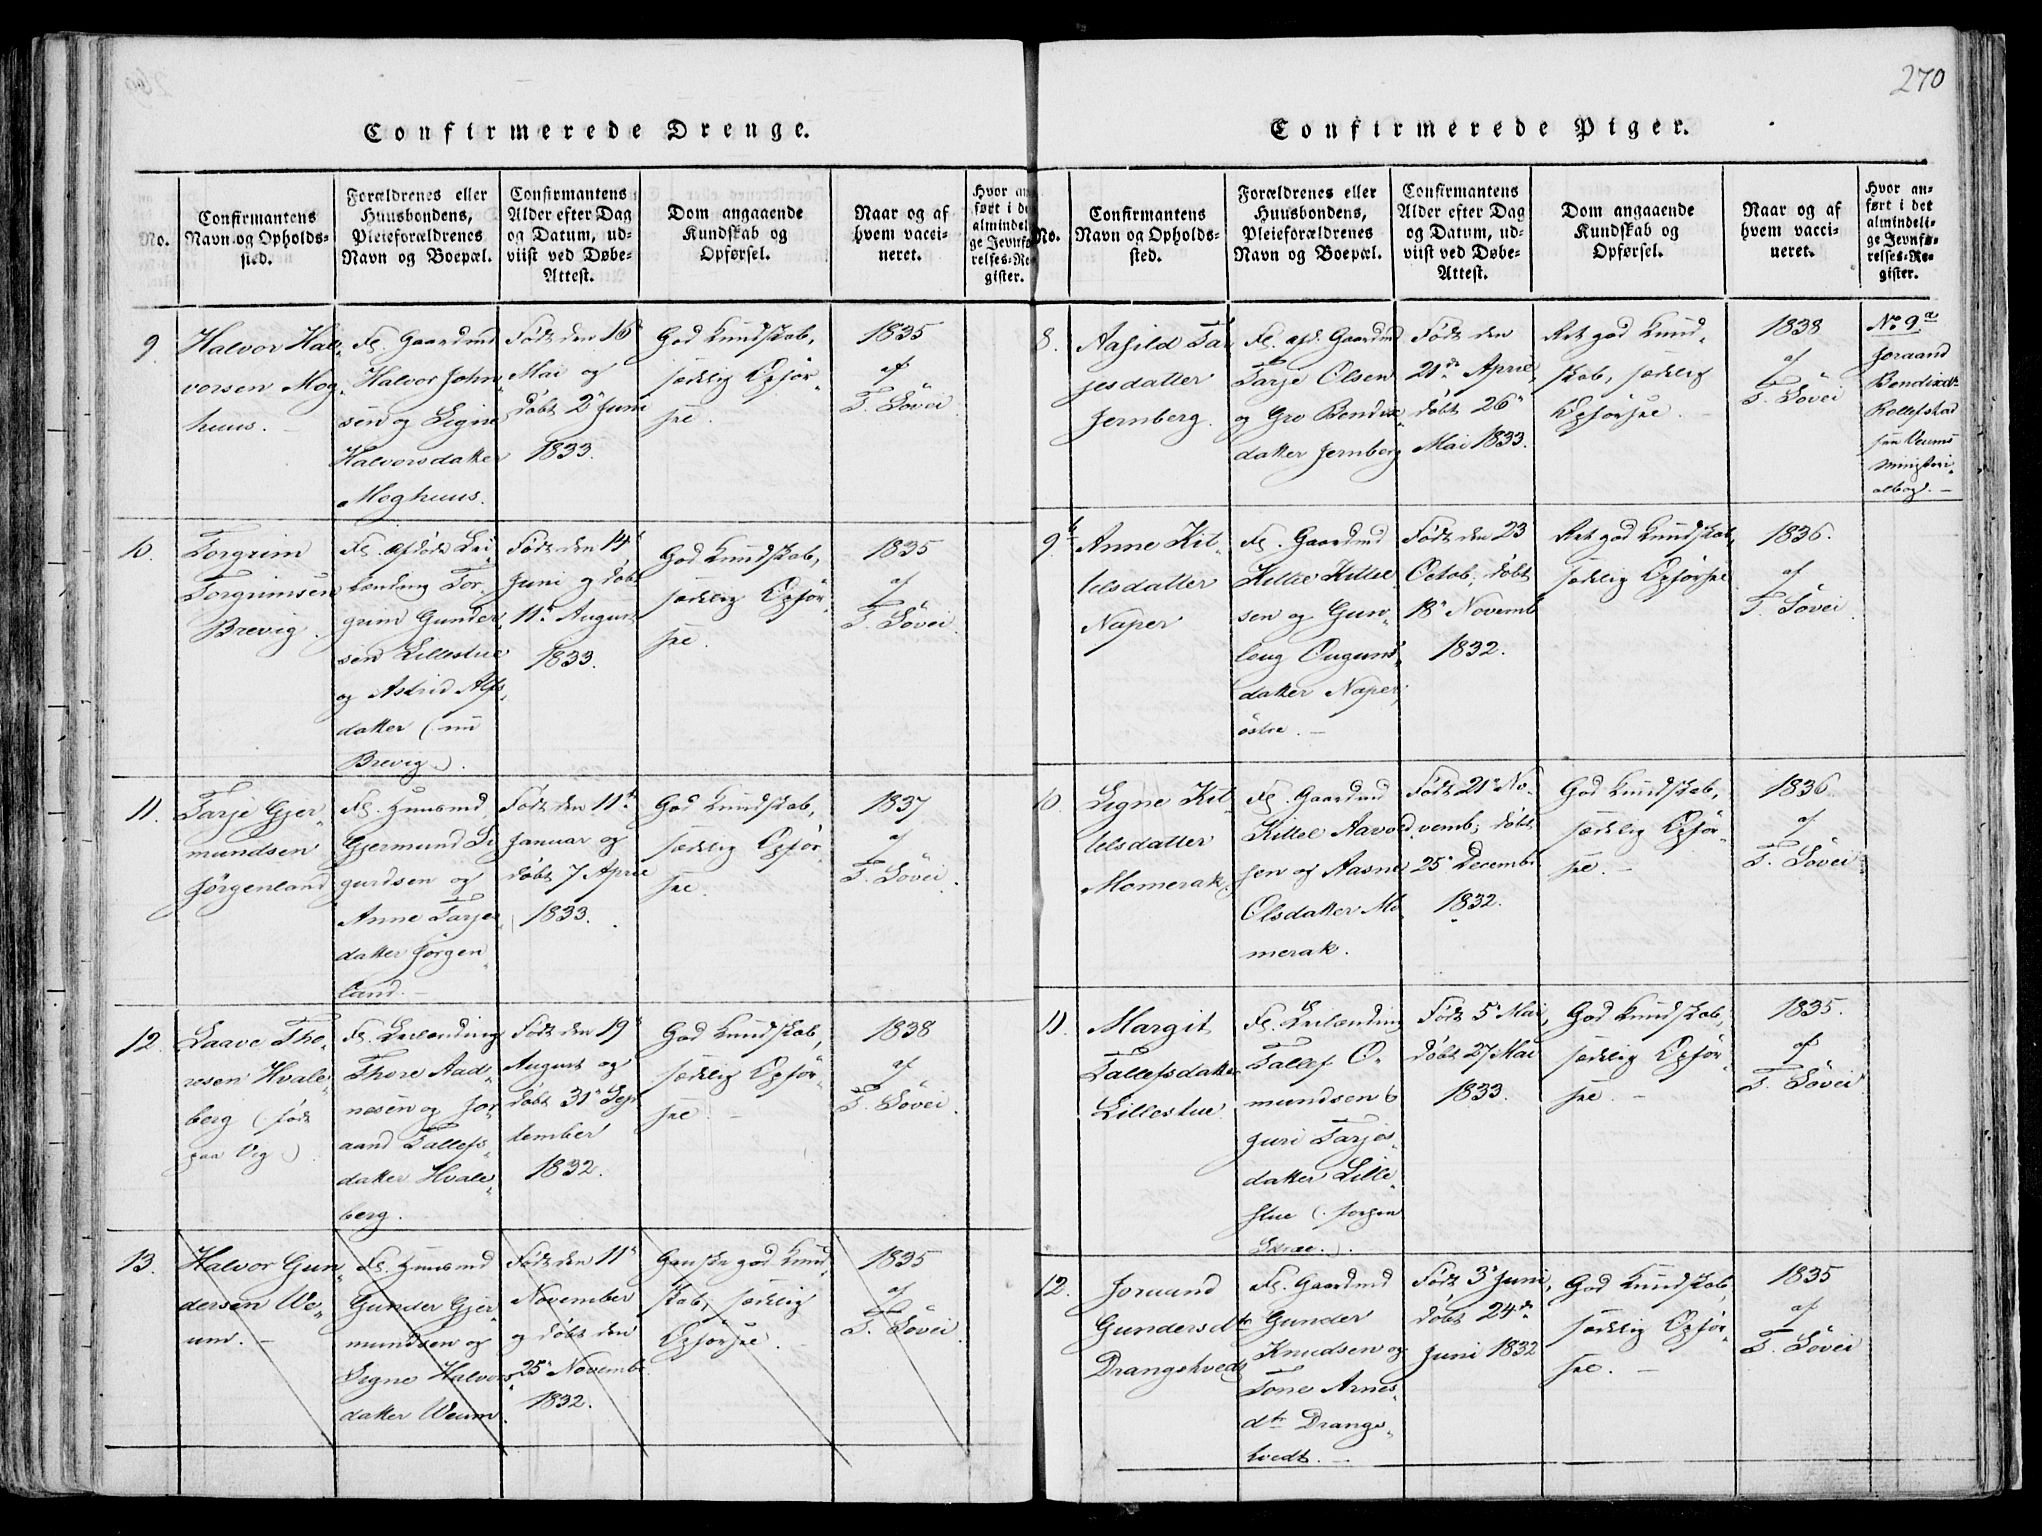 270
Confirmerede Drenge.
No.
Confirmantens
Navn og Opholds-
sted.
Forældrenes eller
Huusbondens,
Pleieforældrenes
Navn og Boepæl.
Confirmantens
Alder efter Dag
og Datum, ud-
viist ved Døbe-
Attest.
Dom angaaende
Kundskab og
Opførsel.
Naar og af
hvem vacci-
neret.
Hvor an-
ført i de
almindel
ge Jevnfø
relses-Re
gister.
9.
Halvor Hal-
vorsen Mog
huus.
F. Gaardmd
Halvor John
sen og Signe
Halvorsdatter
Moghuus.
Født den 16de
Mai og
døbt 2de Juni
1833.
God Kundskab,
sædelig Opfør-
sel.
1835
af
T. Søvei.
10.
Torgrim
Torgrimsen
Brevig.
F. afdøde Lei-
lending Tor-
grim Gunder
sen Lillestue
og Astrid Alfs-
datter (nu
Brevig.).
Født den 14de
Juni og døbt
11te August
1833.
God Kundskab,
sædelig Opfør-
sel.
1835
af
T. Søvei.
11.
Tarje Gjer-
mundsen
Jørgenland
F. Huusmd
Gjermund Si
gurdsen og
Anne Tarje-
datter Jørgen-
land.
Født den 11te
Januar og
døbt 7 April
1833.
God Kundskab,
sædelig Opfør-
sel.
1837
af
T. Søvei.
12.
Saave Tho-
resen Hvale-
berg (født
paa Vig).
F. Leilending
Thore Aad-
nesen og Jor-
aand Tallefs
datter Hvale-
berg.
Født den 19de
August og
døbt 31te Sep-
tember
1832.
God Kundskab,
sædelig Opfør-
sel.
1838
af
T. Søvei.
13.
Halvor Gun-
dersen We-
um.
F. Huusmd
Gunder Gjer-
mundsen og
Signe Halvors-
datter Weum.
Født den 11te
November
og døbt den
25de Novembr
1832.
Ganske god Kund-
skab, sædelig
Opførsel.
1835
af
T. Søvei.
Confirmerede Piger.
No.
Confirmantens
Navn og Opholds-
sted.
Forældrenes eller
Huusbondens,
Pleieforældrenes
Navn og Boepæl.
Confirmantens
Alder efter Dag
og Datum, ud-
viist ved Døbe-
Attest.
Dom angaaende
Kundskab og
Opførsel.
Naar og af
hvem vacci-
neret.
Hvor an-
ført i det
almindeli-
ge Jevnfø-
relses-Re-
gister.
8.
Aasild Tar
jesdatter
Jernberg.
F. afd. Gaardmd
Tarje Olsen
og Gro Bendix-
datter Jernberg
Født den
21de April,
døbt 26de
Mai 1833.
Ret god Kund-
skab, sædelig
Opførsel.
1838
af
T. Søvei
No 9 a
Joraand
Bendixdr
Rollefstad
fra Veums
Ministeri-
albog.
9 b
Anne Kit-
telsdatter
Naper
F. Gaardmd
Kittil Kittil
sen og Gun-
laug Øuguns-
datter Naper,
östre.
Født den 23
Octob, døbt
18de Novemb
1832.
Ret god Kundskab,
sædelig Opførsel
1836.
af
T. Søvei.
10.
Signe Kit-
telsdatter
Momerak.
F. Gaardmd
Kittel Aavold
sen og Aasne
Olsdatter Mo
merak.
Født 21de No-
vemb, døbt
25de Decembr
1832.
God Kundskab,
sædelig Opfør-
sel.
1836
af
T. Søvei
11.
Margit
Tallefsdatter
Lillestue
F. Leilending
Tallef O-
mundsen &
Guri Tarjes-
datter Lille-
stue (
Skræe.).
Født 5te Mai,
døbt 27 Mai
1833.
God Kundskab,
sædelig Opfør-
sel.
1835.
af
T. Søvei
12.
Jorund
Gundersdtr
Drangshvedt
F. Gaardmd
Gunder
Knudsen og
Tone Arnes-
dtr Drangs-
hvedt.
Født 3de Juni,
døbt 24de
Juni 1832
God Kundskab,
sædelig Opfør-
sel.
1835
af
T. Søvei